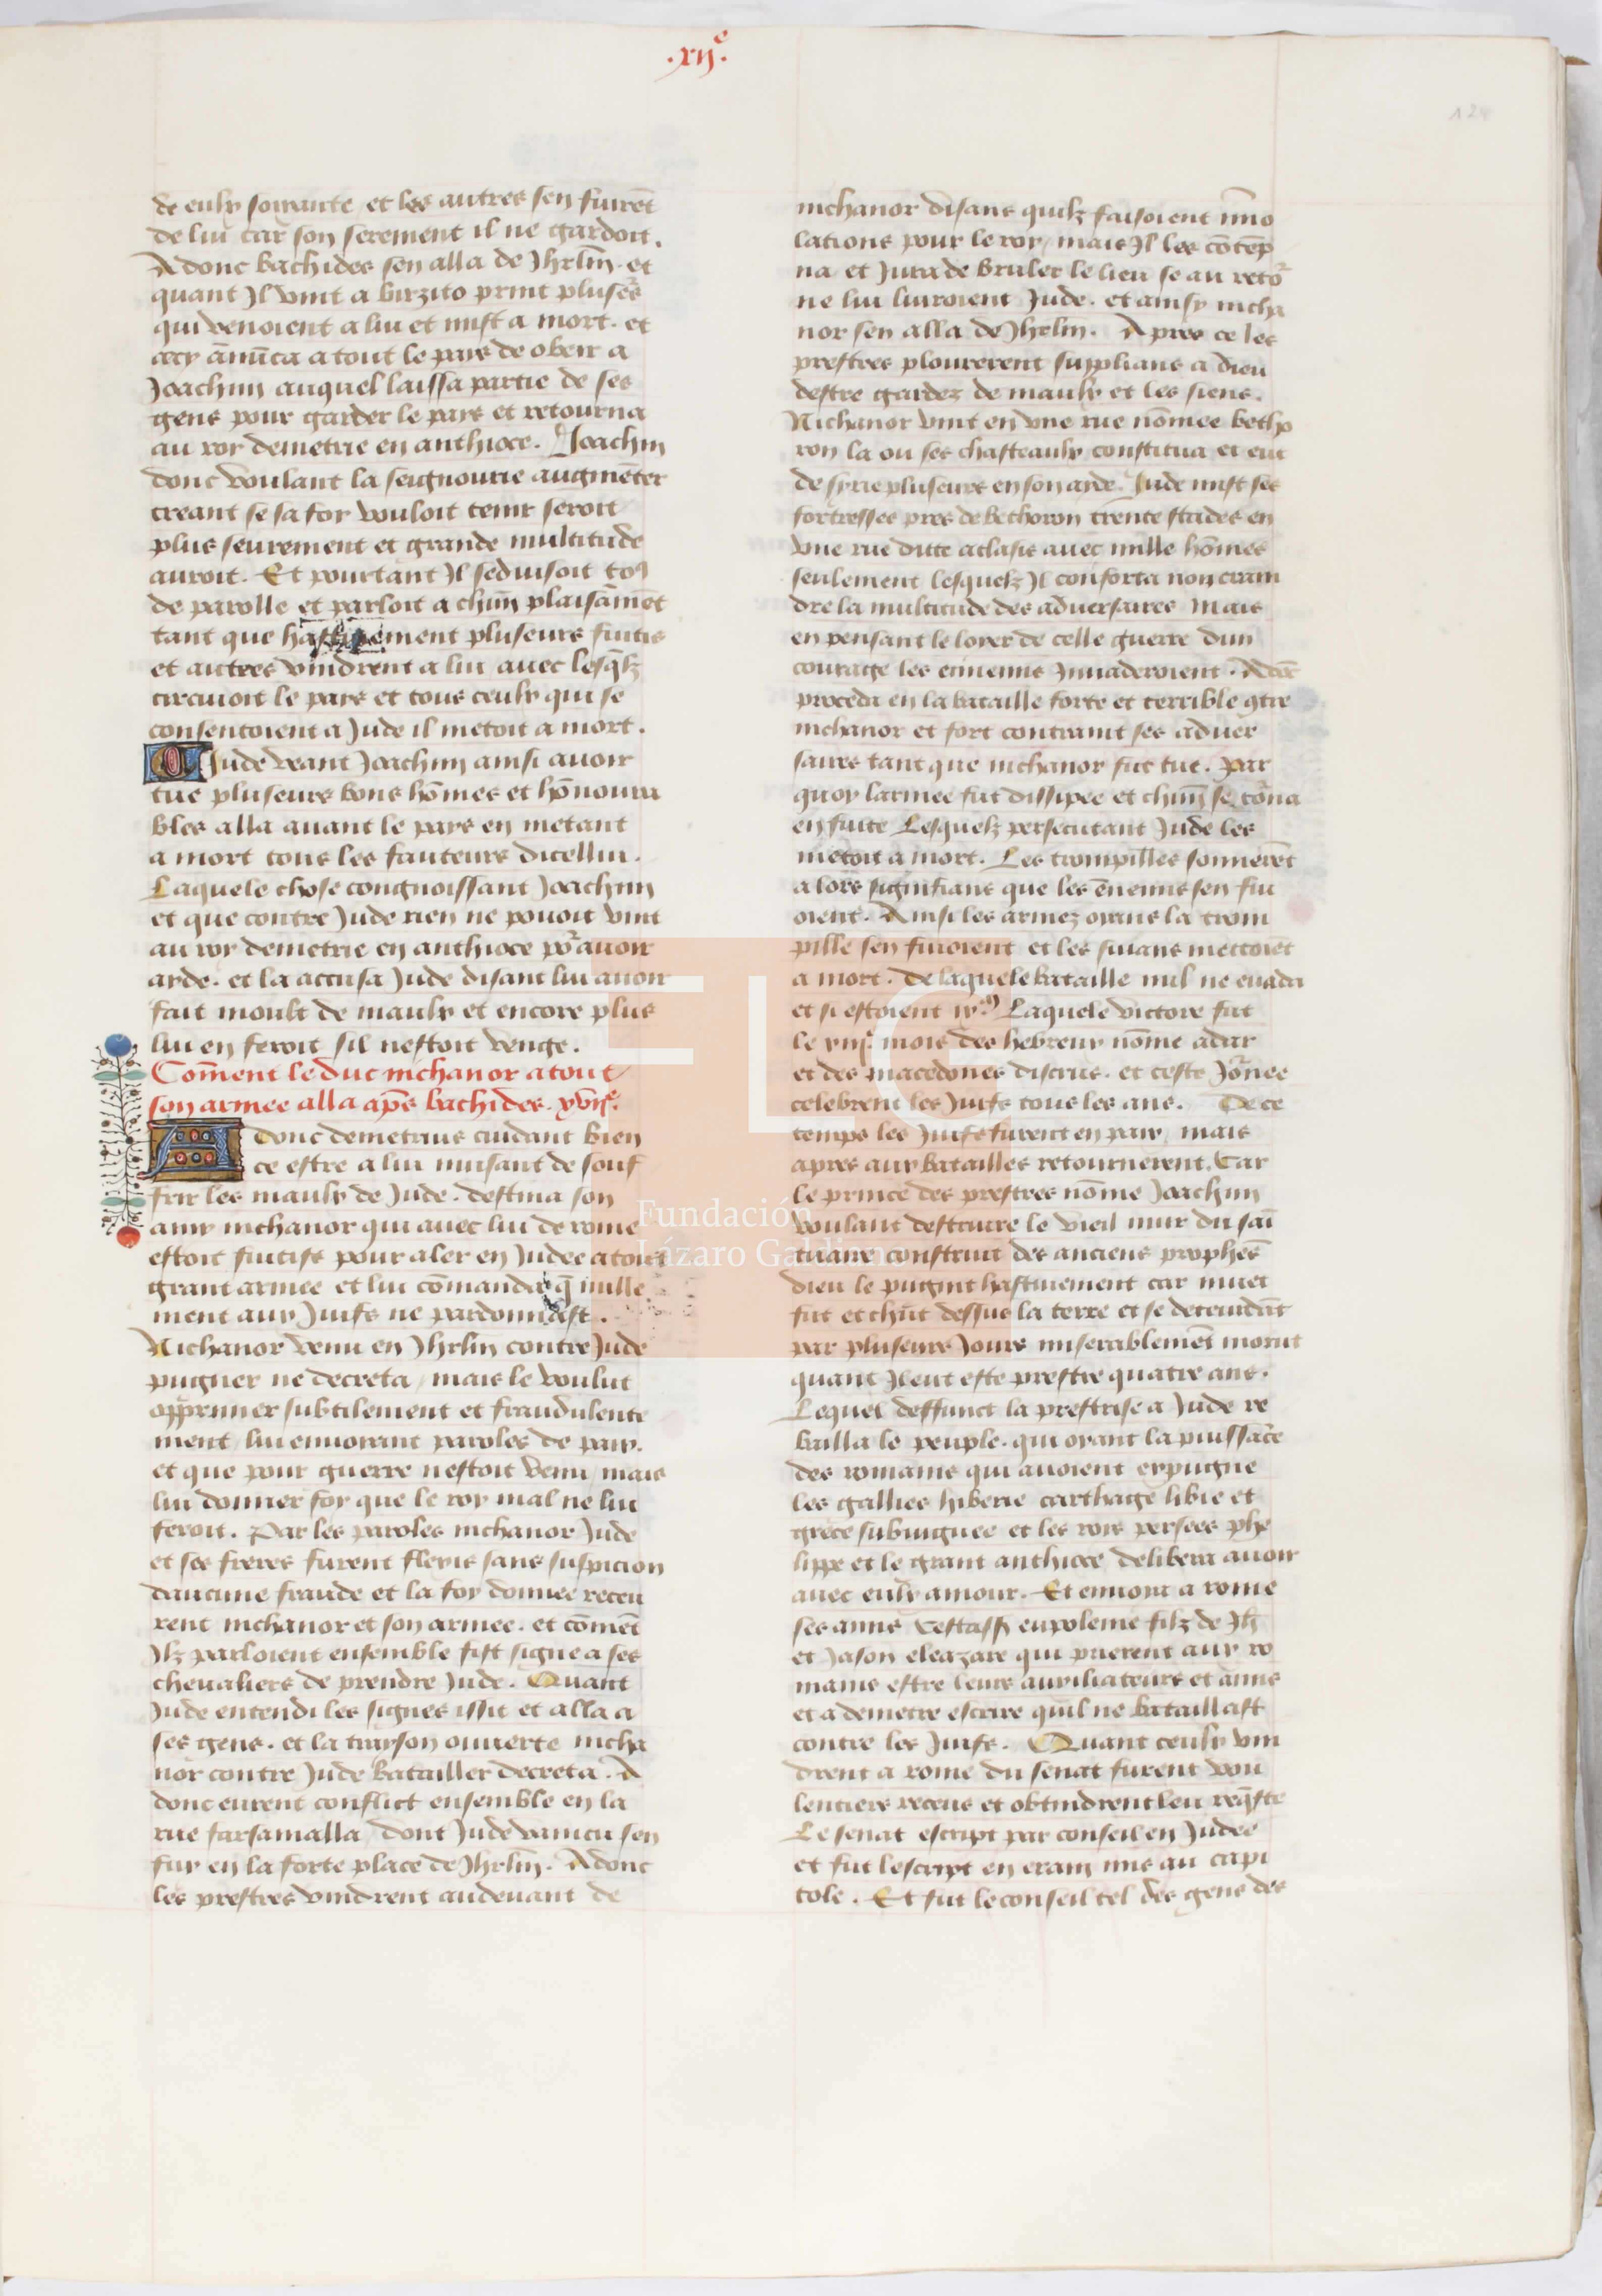 .xij.e
124
de eulx soixante et les autres sen fuirēt
de lui car son serement il ne gardoit.
Adonc bachides sen alla de Jhrlm̄. et
quant Jl vint a birzito print pluses̄
qui venoient a lui et mist a mort. et
cecy ānūca a tout le pays de obeir a
Joachim auquel laissa partie de ses
gens pour garder le pays et retourna
au roy demetrie en anthioce. Joachim
donc voulant la seignourie augmēter
creant se sa foy vouloit tenir seroit
plus seurement et grande multitude
auroit. Et pourtant Jl seduisoit to9
de parolle et parloit a chūn plaisāmēt
tant que hastiuement pluseurs fuitis
et autres vindrent a lui auec lesq̄lz
circuioit le pays et tous ceulx qui se
consentoient a Jude il metoit a mort.
Jude veant Joachim ainsi auoir
tue pluseurs bons hōmes et hōnoura
bles alla auant le pays en metant
a mort tous les fauteurs dicellui.
Laquele chose congnoissant Joachim
et que contre Jude rien ne pouoit vint
au roy demetrie en anthioce po2 auoir
ayde. et la accusa Jude disant lui auoir
fait moult de maulx et encore plus
lui en feroit sil nestoit venge.
Cōment le duc nichanor a tout
son armee alla ap̄s bachides. xviie.
Adonc demetrius cuidant bien
ce estre a lui nuisant de souf
frir les maulx de Jude. destina son
amy nichanor qui auec lui de rome
estoit fuitifs pour aler en Judee a tout
grant armee et lui cōmanda q̄ nulle
ment aux Juifs ne pardonnast.
Nichanor venu en Jhrlm̄ contre Jude
pugner ne decreta, mais le voulut
opprimer subtilement et fraudulente
ment, lui enuoiant paroles de paix.
et que pour guerre nestoit venu, mais
lui donner foy que le roy mal ne lui
feroit. Par les paroles nichanor Jude
et ses freres furent flexis sans suspicion
daucune fraude et la foy donnee receu
rent nichanor et son armee. et cōmēt
Jlz parloient ensemble fist signe a ses
cheualiers de prendre Jude. Quant
Jude entendi les signes issit et alla a
ses gens. et la trayson ouuerte nicha
nor contre Jude batailler decreta. A
donc eurent conflict ensemble en la
rue farsamalla, dont Jude vaincu sen
fuy en la forte place de Jhrlm̄. Adonc
les prestres vindrent audeuant de
nichanor disans quilz faisoient īmo
lations pour le roy, mais Jl les cōtēp
na et Jura de bruler le lieu se au reto2
ne lui liuroient Jude. et ainsy nicha
nor sen alla de Jhrlm̄. Apres ce les
prestres plourerent supplians a dieu
destre gardez de maulx et les siens.
Nichanor vint en vne rue nōmee betho
ron la ou ses chasteaulx constitua et eut
de syrie pluseurs en son ayde. Jude mist ses
fortresses pres de bethoron trente stades en
vne rue dicte aclasis auec mille hōmes
seulement lesquelz Jl conforta non crain
dre la multitude des aduersaires Mais
en pensant le loyer de celle guerre dun
courage les ennemis Jnuaderoient. Adōc
proceda en la bataille forte et terrible 9tre
nichanor et fort contraint ses aduer
saires tant que nichanor fut tue. Par
quoy larmee fut dissipee et chūn se to2na
en fuite Lesquelz persecutant Jude les
metoit a mort. Les trompilles sonnerēt
alors signifians que les ēnemis sen fui
oient. Ainsi les armez oyans la trom
pille sen fuioient et les suians mettoiēt
a mort. De laquele bataille nul ne euada
et si estoient ix.M Laquele victore fut
le xiije. mois des hebreux nōme adar
et des macedones discrus. et ceste Jo2nee
celebrent les Juifs tous les ans. De ce
temps les Juifs furent en paix, mais
apres aux batailles retournerent. Car
le prince des prestres nōme Joachim
voulant destruire le vieil mur du sāi
tuaire construit des anciens prophēs
dieu le pugnit hastiuement car muet
fut et cheut dessus la terre et se detendāt
par pluseurs Jours miserablemēt morut
quant Jl eut este prestre quatre ans.
Lequel deffunct la prestrise a Jude re
bailla le peuple. qui oyant la puissāce
des romains qui auoient expugne
les gallies hiberie carthage libie et
grece subiuguee et les rois persees phe
lippe et le grant anthioce delibera auoir
auec eulx amour. Et enuoia a rome
ses amis eupoleme filz de Jh̄
et Jason eleazare qui prierent aux ro
mains estre leurs auxiliateurs et amis
et a demetre escrire quil ne bataillast
contre les Juifs. Quant ceulx vin
drent a rome du senat furent vou
lentiers receus et obtindrent leu req̄ste
Le senat escript par conseil en Judee
et fut lescript en eram mis au capi
tole. Et fut le conseil tel des gens des
FLG
Fundación
Lázaro Galdiano